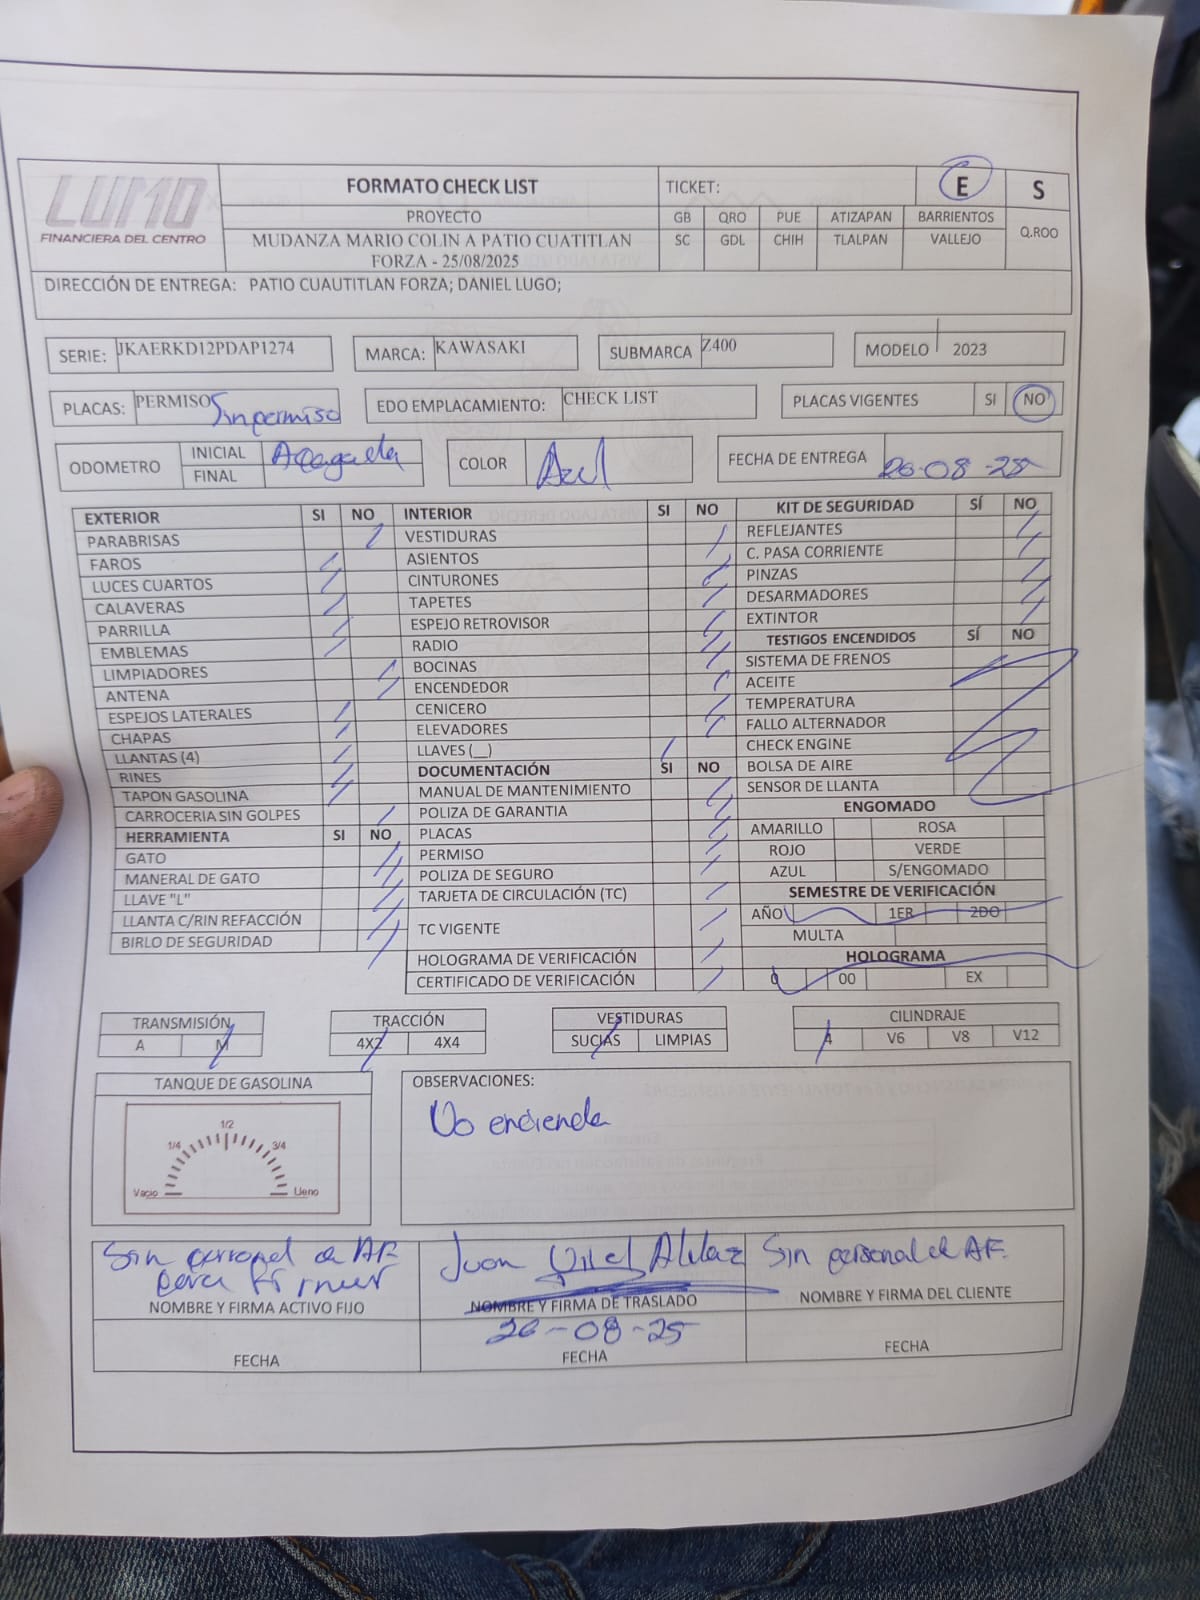 LUMO
FINANCIERA DEL CENTRO
FORMATO CHECK LIST
TICKET:
E
S
PROYECTO
GB QRO PUE ATIZAPAN BARRIENTOS
Q.ROO
MUDANZA MARIO COLIN A PATIO CUATITLAN
FORZA - 25/08/2025
SC GDL CHIH TLALPAN VALLEJO
DIRECCIÓN DE ENTREGA: PATIO CUAUTITLAN FORZA; DANIEL LUGO;
SERIE: JKAERKD12PDAP1274 MARCA: KAWASAKI SUBMARCA Z400 MODELO 2023
PLACAS: PERMISO Sin permiso EDO EMPLACAMIENTO: CHECK LIST PLACAS VIGENTES SI NO
ODOMETRO INICIAL Apagada COLOR Azul FECHA DE ENTREGA 26-08-25
FINAL
EXTERIOR SI NO INTERIOR SI NO KIT DE SEGURIDAD SÍ NO
PARABRISAS VESTIDURAS REFLEJANTES
FAROS ASIENTOS C. PASA CORRIENTE
LUCES CUARTOS CINTURONES PINZAS
CALAVERAS TAPETES DESARMADORES
PARRILLA ESPEJO RETROVISOR EXTINTOR
EMBLEMAS RADIO TESTIGOS ENCENDIDOS SÍ NO
LIMPIADORES BOCINAS SISTEMA DE FRENOS
ANTENA ENCENDEDOR ACEITE
ESPEJOS LATERALES CENICERO TEMPERATURA
CHAPAS ELEVADORES FALLO ALTERNADOR
LLANTAS (4) LLAVES (__) CHECK ENGINE
RINES DOCUMENTACIÓN SI NO BOLSA DE AIRE
TAPON GASOLINA MANUAL DE MANTENIMIENTO SENSOR DE LLANTA
CARROCERIA SIN GOLPES POLIZA DE GARANTIA ENGOMADO
HERRAMIENTA SI NO PLACAS AMARILLO ROSA
GATO PERMISO ROJO VERDE
MANERAL DE GATO POLIZA DE SEGURO AZUL S/ENGOMADO
LLAVE "L" TARJETA DE CIRCULACIÓN (TC) SEMESTRE DE VERIFICACIÓN
LLANTA C/RIN REFACCIÓN TC VIGENTE AÑO 1ER 2DO
BIRLO DE SEGURIDAD MULTA
HOLOGRAMA DE VERIFICACIÓN HOLOGRAMA
CERTIFICADO DE VERIFICACIÓN 0 00 EX
TRANSMISIÓN TRACCIÓN VESTIDURAS CILINDRAJE
A M 4X2 4X4 SUCIAS LIMPIAS 4 V6 V8 V12
TANQUE DE GASOLINA OBSERVACIONES:
No enciende
1/4 1/2 3/4
Vacio Lleno
Sin personal de AF Juan Alilaz Sin personal de AF
para firmar
NOMBRE Y FIRMA ACTIVO FIJO NOMBRE Y FIRMA DE TRASLADO NOMBRE Y FIRMA DEL CLIENTE
26-08-25
FECHA FECHA FECHA